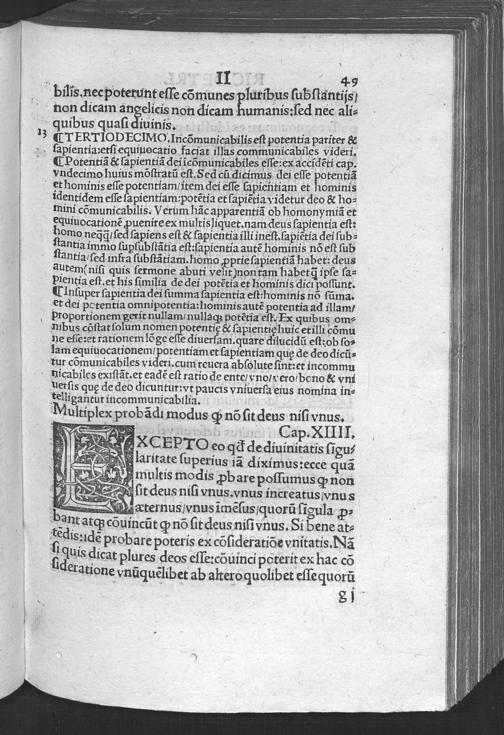 II 49
bilis. nec poterunt esse cõmunes pluribus substantijs/
non dicam angelicis non dicam humanis: sed nec ali⸗
quibus quasi diuinis.
13 ¶TERTIODECIMO. Incõmunicabilis est potentia pariter &
sapientia: etsi equiuocatio faciat illas communicabiles videri.
¶Potentiã & sapientiã dei icõmunicabiles esse: ex accidẽti cap.
vndecimo huius mõstratũ est. Sed cũ dicimus dei esse potentiã
et hominis esse potentiam/item dei esse sapientiam et hominis
identidem esse sapientiam: potẽtia et sapiẽtia videtur deo & ho⸗
mini cõmunicabilis. Verum hãc apparentiã ob homonymiã et
equiuocationẽ ꝓuenire ex multis liquet. nam deus sapientia est:
homo neqꝗ̃/sed sapiens est & sapientia illi inest. sapiẽtia dei sub⸗
stantia immo supsubstãtia est: sapientia autẽ hominis nõ est sub
stantia/sed infra substãtiam. homo ꝓprie sapientiã habet: deus
autem (nisi quis sermone abuti velit) non tam habet ꝗ̃ ipse sa⸗
pientia est. et his similia de dei potẽtia et hominis dici possunt.
¶Insuper sapientia dei summa sapientia est: hominis nõ sũma.
et dei potentia omnipotentia: hominis autẽ potentia ad illam/
proportionem gerit nullam/nullaqꝫ potẽtia est. Ex quibus om⸗
nibus cõstat solum nomen potentię & sapientię huic et illi cõmu
ne esse: et rationem lõge esse diuersam. quare dilucidũ est: ob so⸗
lam equiuocationem/potentiam et sapientiam quę de deo dicũ⸗
tur cõmunicabiles videri. cum reuera absolute sint: et incommu
nicabiles existãt. et eadẽ est ratio de ente/vno/vero/bono & vni
uersis quę de deo dicuntur: vt paucis vniuersa eius nomina in⸗
telligantur incommunicabilia.
Multiplex probãdi modus ꝙ nõ sit deus nisi vnus.
Cap. XIIII.
EXCEPTO eo qd̃ de diuinitatis sigu/
laritate superius iã diximus: ecce quã
multis modis ꝓbare possumus ꝙ non
sit deus nisi vnus. vnus increatus/vnus
æternus/vnus ĩmẽsus/quorũ sĩgula ꝓ⸗
bant atqꝫ cõuincũt ꝙ nõ sit deus nisi vnus. Si bene at⸗
tẽdis: idẽ probare poteris ex cõsideratiõe vnitatis. Nã
si quis dicat plures deos esse: cõuinci poterit ex hac cõ
sideratione vnũquẽlibet ab altero quolibet esse quorũ
g j